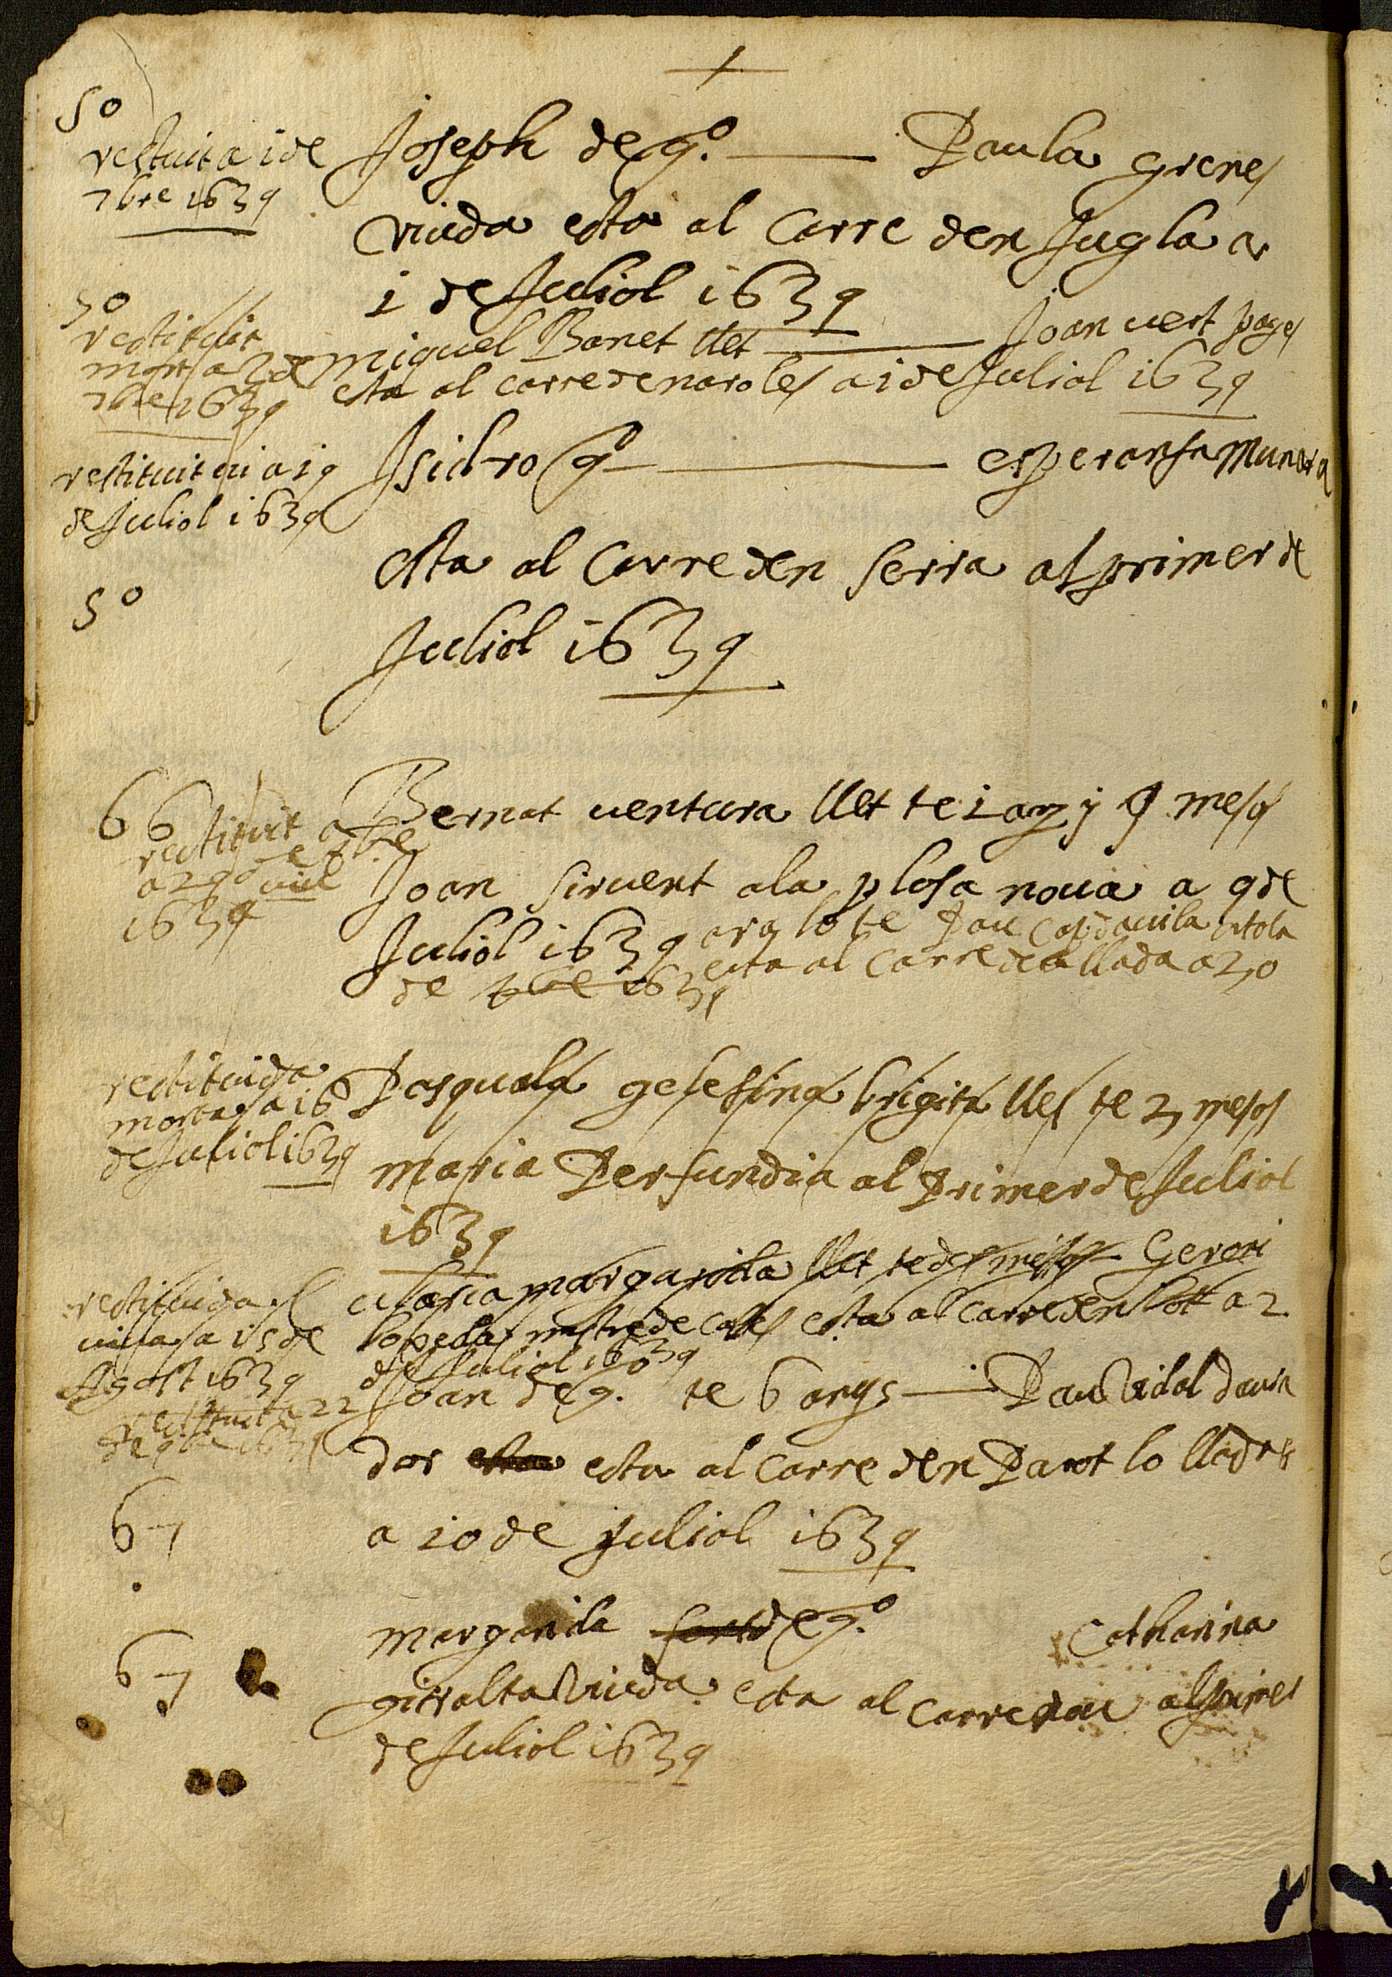 50
restuit a i de
7bre 1639
Joseph de g.º — Paula grenes
viuda esta al Carre den Jugla a
1 de Juliol 1639
50
restituit
mort a 2 de
7bre 1639
miquel Bonet llet — Joan uert pages
esta al carre de naroles a 1 de Juliol 1639
restituit qui a 19
de Juliol 1639
50
Isidro gº — esperansa Munara
esta al Carre den serra al primer de
Juliol 1639
66
restituit
a 29 de 7bre
viu
1639
Bernat uentura llet te 1 any y 9 mesos
Joan siruert a la plasa noua a 9 de
Juliol 1639 ara lo te Pau Capdauila
esta al Carre de allada a 20
de 1639
restituida
morta a 16
de Juliol 1639
Pasquala gesefina brigita llet te 2 mesos
maria Perfundia al Primer de Juliol
1639
restituida
uiua a 15 de
Agost 1639
Maria margarida llet te dos mesos Geroni
lopeda mestre de cases esta al carre den bot a 2
de Juliol 1639
restituit a 22
de 9bre 1639
67
Joan de g. te 6 anys — Pau Vidal daura
dor esta al Carre den Parot lo lladre
a 10 de Juliol 1639
67
margarida de g.º Catharina
girralta Viuda esta al carre nou al primer
de Juliol 1639